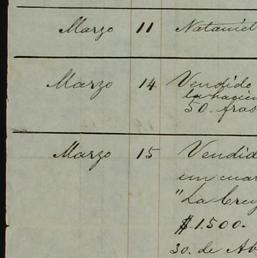 Marzo 11 Nataniel
Marzo 14 Vendido
la hacien
50. fras
Marzo 15 Vendid
un cuar
"La Crey
$1.500.
30. de Ab